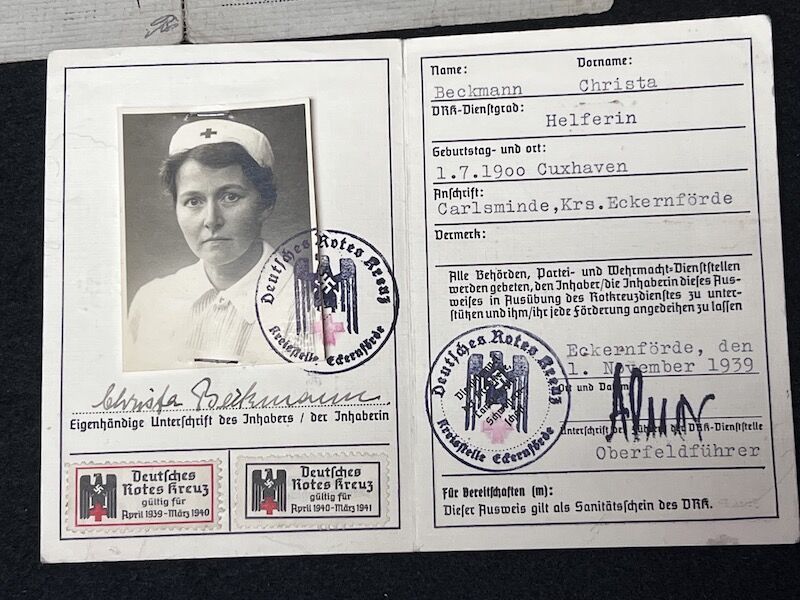 Deutsches Rotes Kreuz
Kreisstelle Eckernförde
Christa Beckmann
Eigenhändige Unterschrift des Inhabers / der Inhaberin
Deutsches
Rotes Kreuz
gültig für
April 1939-März 1940
Deutsches
Rotes Kreuz
gültig für
April 1940-März 1941
Name: Vorname:
Beckmann Christa
DRK-Dienstgrad:
Helferin
Geburtstag- und ort:
1.7.19oo Cuxhaven
Anschrift:
Carlsminde,Krs.Eckernförde
Vermerk:
Alle Behörden, Partei- und Wehrmacht-Dienststellen
werden gebeten, den Inhaber/die Inhaberin dieses Aus-
weises in Ausübung des Rotkreuzdienstes zu unter-
stützen und ihm/ihr jede Förderung angedeihen zu lassen
Eckernförde, den
1. November 1939
Ort und Datum
Deutsches Rotes Kreuz
Kreisstelle Eckernförde
Unterschrift des Führers der DRK-Dienststelle
Oberfeldführer
Für Bereitschaften (m):
Dieser Ausweis gilt als Sanitätsschein des DRK.